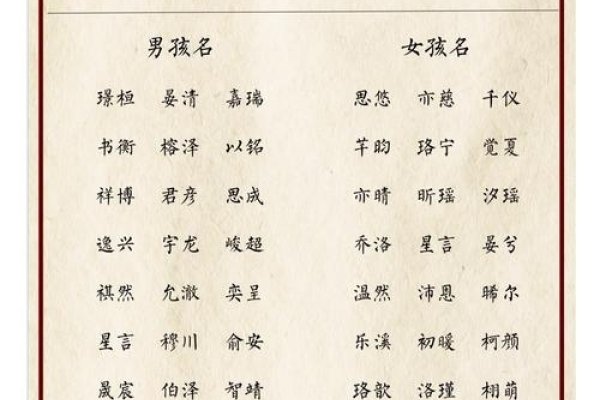 男孩名 女孩名
璟桓 晏清 嘉瑞 思悠 亦慈 千仪
书衡 榕泽 以铭 芊昀 珞宁 觉夏
祥博 君彦 思成 亦晴 昕瑶 汐瑶
逸兴 宇龙 峻超 乔洛 星言 晏兮
祺然 允澈 奕呈 温然 沛恩 晞尔
星言 穆川 俞安 乐溪 初暖 柯颜
晟宸 伯泽 智靖 珞歆 洛瑾 栩萌